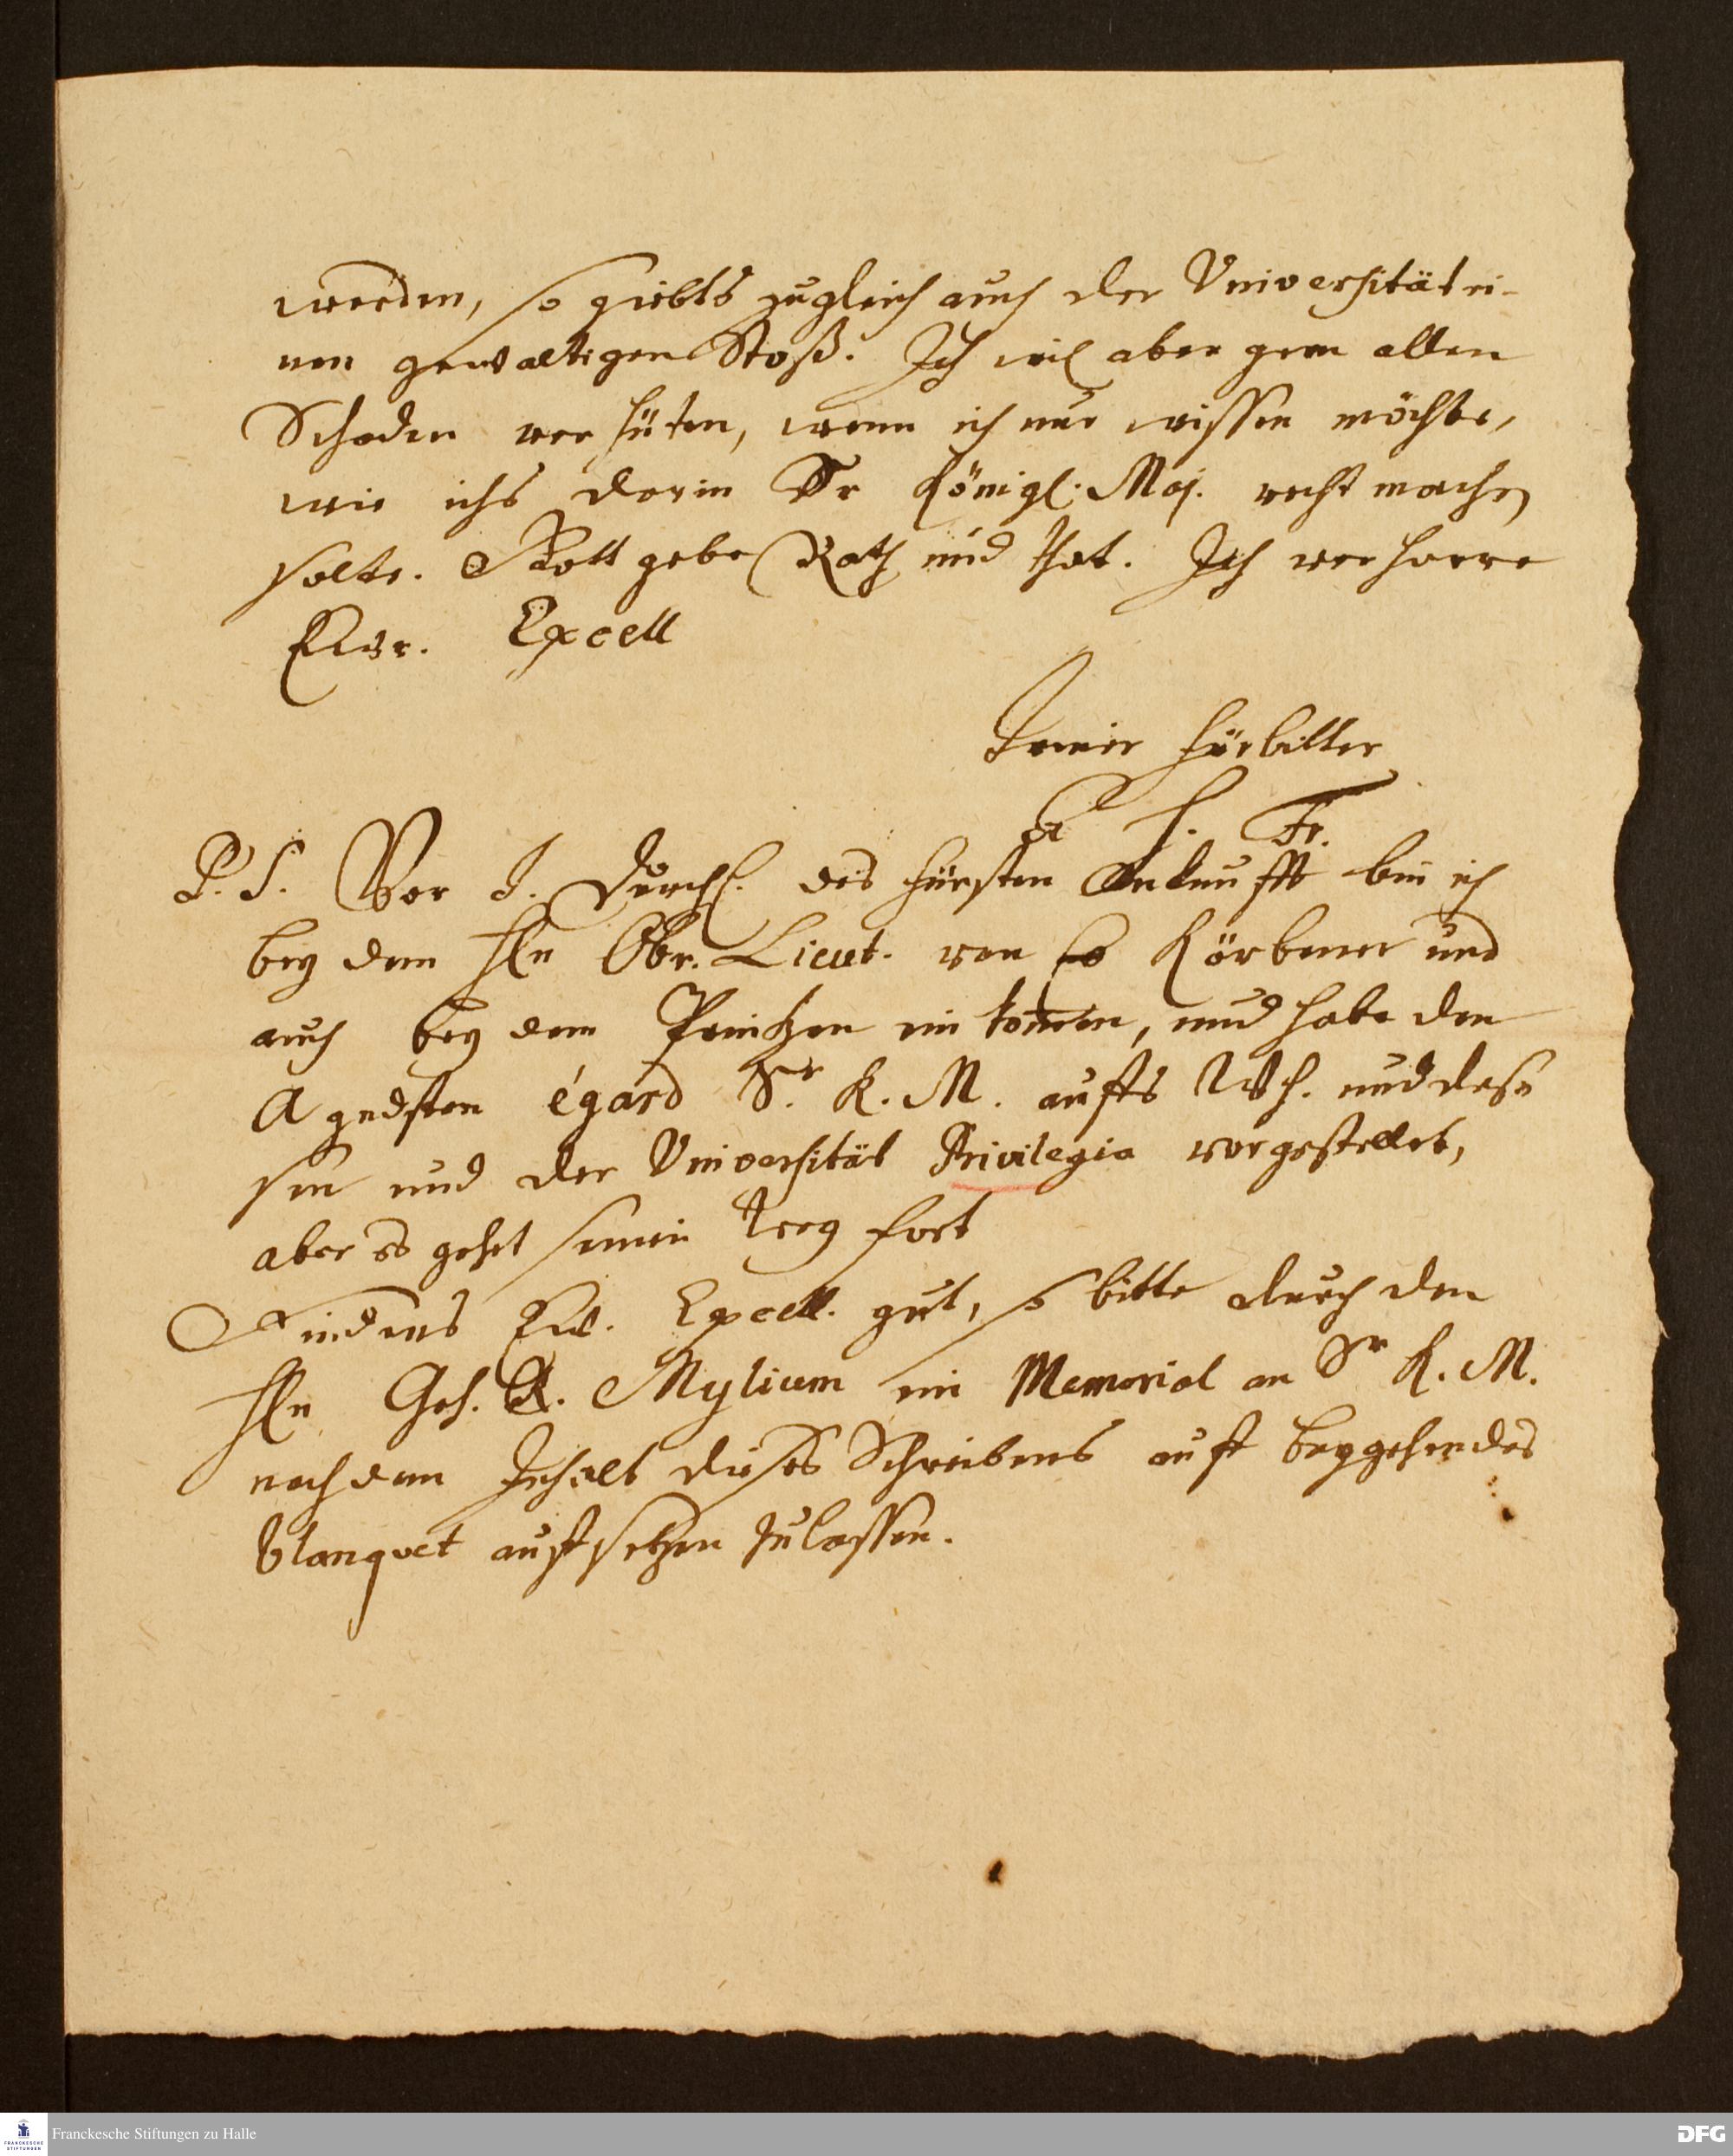 werden, so giebts zugleich auch der Universität ei-
nen gewaltigen Stoß. Ich wil aber gern allen
Schaden verhüten, wenn ich nur wissen möchte,
wie ichs darin Sr Königl. Maj. recht machen
solte. Gott gebe Rath und That. Ich verharre
Ewr. Excell
Treuer Fürbitter
A H. Fr.
P. S. Vor I. Durchl. des Fürsten Ankunfft bin ich
bey dem Hn Obr. Lieut. von und
auch bey dem Printzen ein kommen, und habe den
A gndsten égard Sr. K. M. auffs WH. und deß-
sen und der Universität Privilegia vorgestellet,
aber es gehet seinen Weg fort
Findens Ew. Excell. gut, so bitte durch den
Hn Geh. R. Mylium ein Memorial an Sr K. M.
nach dem Inhalt dieses Schreibens auff beygehendes
blanquet auffsetzen zulassen.
Franckesche Stiftungen zu Halle
FRANCKESCHE
STIFTUNGEN
DFG